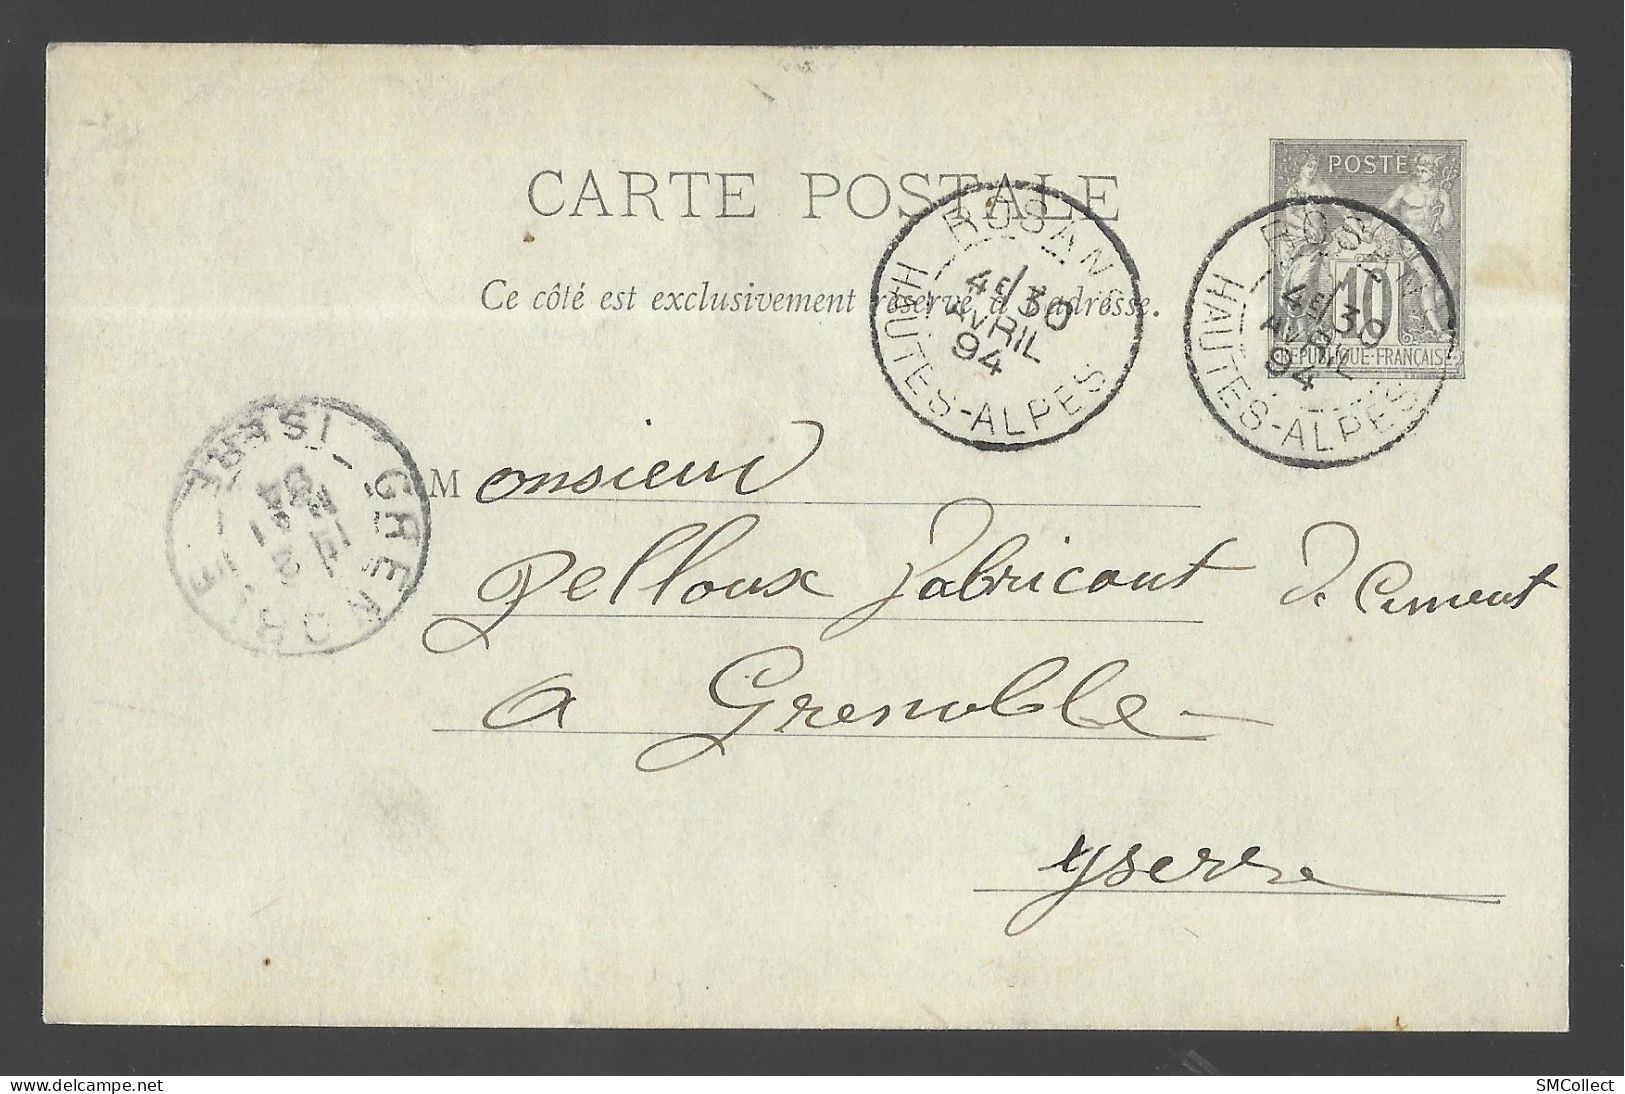 CARTE POSTALE
Ce côté est exclusivement réservé à l'adresse.
POSTE
10
REPUBLIQUE FRANÇAISE
ROSANS
4E/30
AVRIL
94
HAUTES-ALPES
ROSANS
4E/30
AVRIL
94
HAUTES-ALPES
GRENOBLE
2
MAI
94
ISERE
Monsieur
Pelloux fabricant de Ciment
a Grenoble
yserre
SMCollect